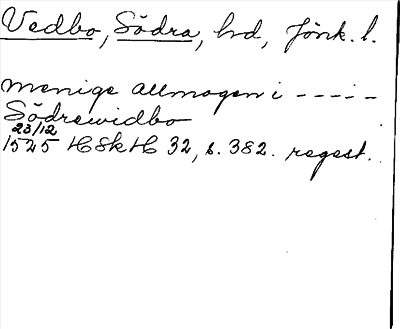 Vedbo, Södra, hd, Jönk. l.
menige allmogen i - - - - -
Södrewidbo
23/12
1525 HSkH 32, s. 382. regest.